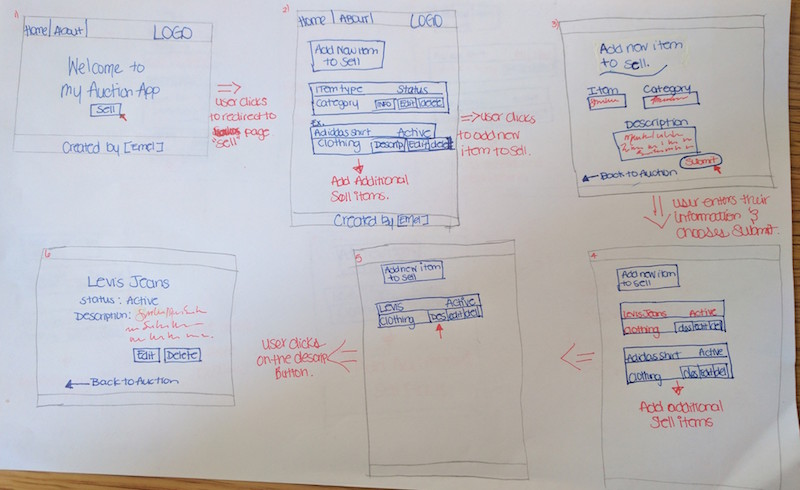 1)
Home | About | LOGO
Welcome to
my Auction App
Sell
Created by [Emel]
=>
user clicks
to redirect to
"sell" page
2)
Home | About | LOGO
Add New item
to sell
Item type Status
Category INFO Edit delete
Ex.
Adidas shirt Active
Clothing Descrip Edit delete
Add Additional
Sell items.
Created by [Emel]
=> user clicks
to add new
item to sell.
3)
Add new item
to sell.
Item Category
Description
Submit
Back to Auction
user enters their
information &
chooses Submit.
4
Add new item
to sell
Levis Jeans Active
Clothing des edit del
Adidas Shirt Active
Clothing des edit del
Add additional
Sell items
5
Add new item
to sell
Levis Active
Clothing Des edit del
user clicks
on the descrip
Button.
6
Levis Jeans
Status: Active
Description:
Edit Delete
Back to Auction